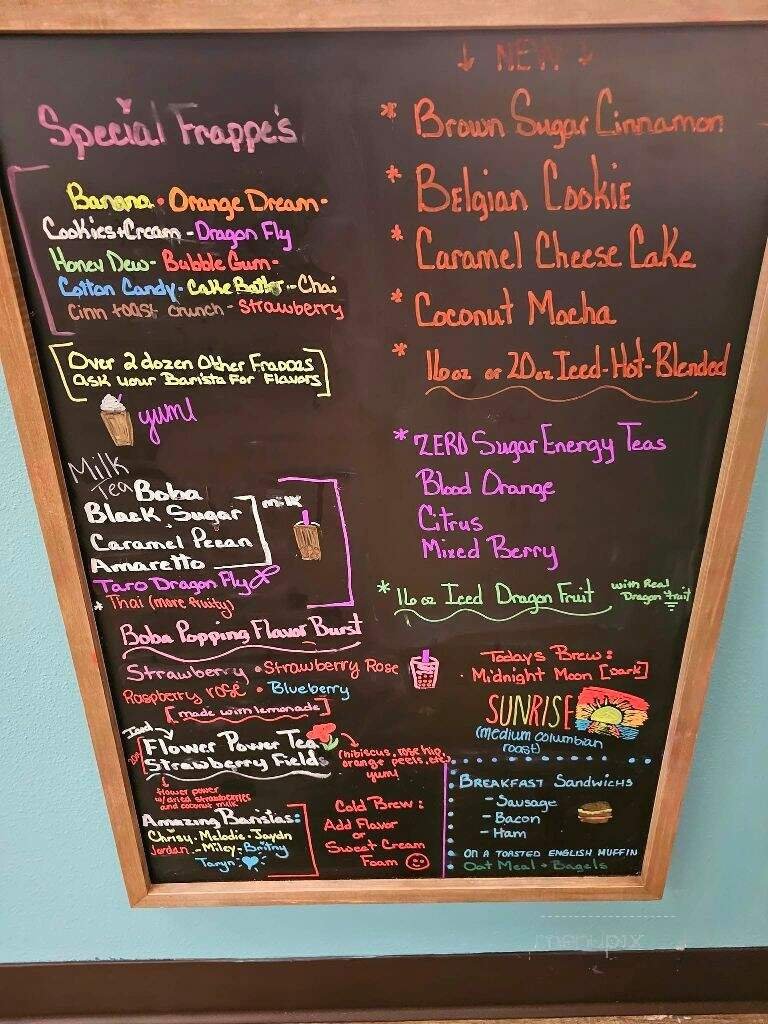 Special Frappe's
Banana • Orange Dream -
Cookies + Cream - Dragon Fly
Honey Dew - Bubble Gum -
Cotton Candy - Cake Batter - Chai
Cinn toast crunch - Strawberry
Over 2 dozen Other Frappes
ask your Barista For Flavors
yum!
Milk
Tea Boba
Black Sugar
milk
Caramel Pecan
Amaretto
Taro Dragon Fly
* Thai (more fruity)
Boba Popping Flavor Burst
Strawberry • Strawberry Rose
Raspberry rose • Blueberry
[made with lemonade]
Iced
Flower Power Tea
Strawberry Fields
(hibiscus, rose hip,
orange peels, etc)
yum!
flower power
w/dried strawberries
and coconut milk
Amazing Baristas:
Chrisy - Melodie - Jaydn
Jordan - Miley - Britny
Taryn
Cold Brew:
Add Flavor
or
Sweet Cream
Foam
↓ NEW ↓
* Brown Sugar Cinnamon
* Belgian Cookie
* Caramel Cheese Cake
* Coconut Mocha
* 16 oz or 20 oz Iced-Hot-Blended
* ZERO Sugar Energy Teas
Blood Orange
Citrus
Mixed Berry
* 16 oz Iced Dragon Fruit
with Real
Dragon Fruit
Todays Brew:
Midnight Moon [Dark]
SUNRISE
(medium columbian
roast)
BREAKFAST SANDWICHS
- Sausage
- Bacon
- Ham
ON A TOASTED ENGLISH MUFFIN
Oat Meal • Bagels
menupix